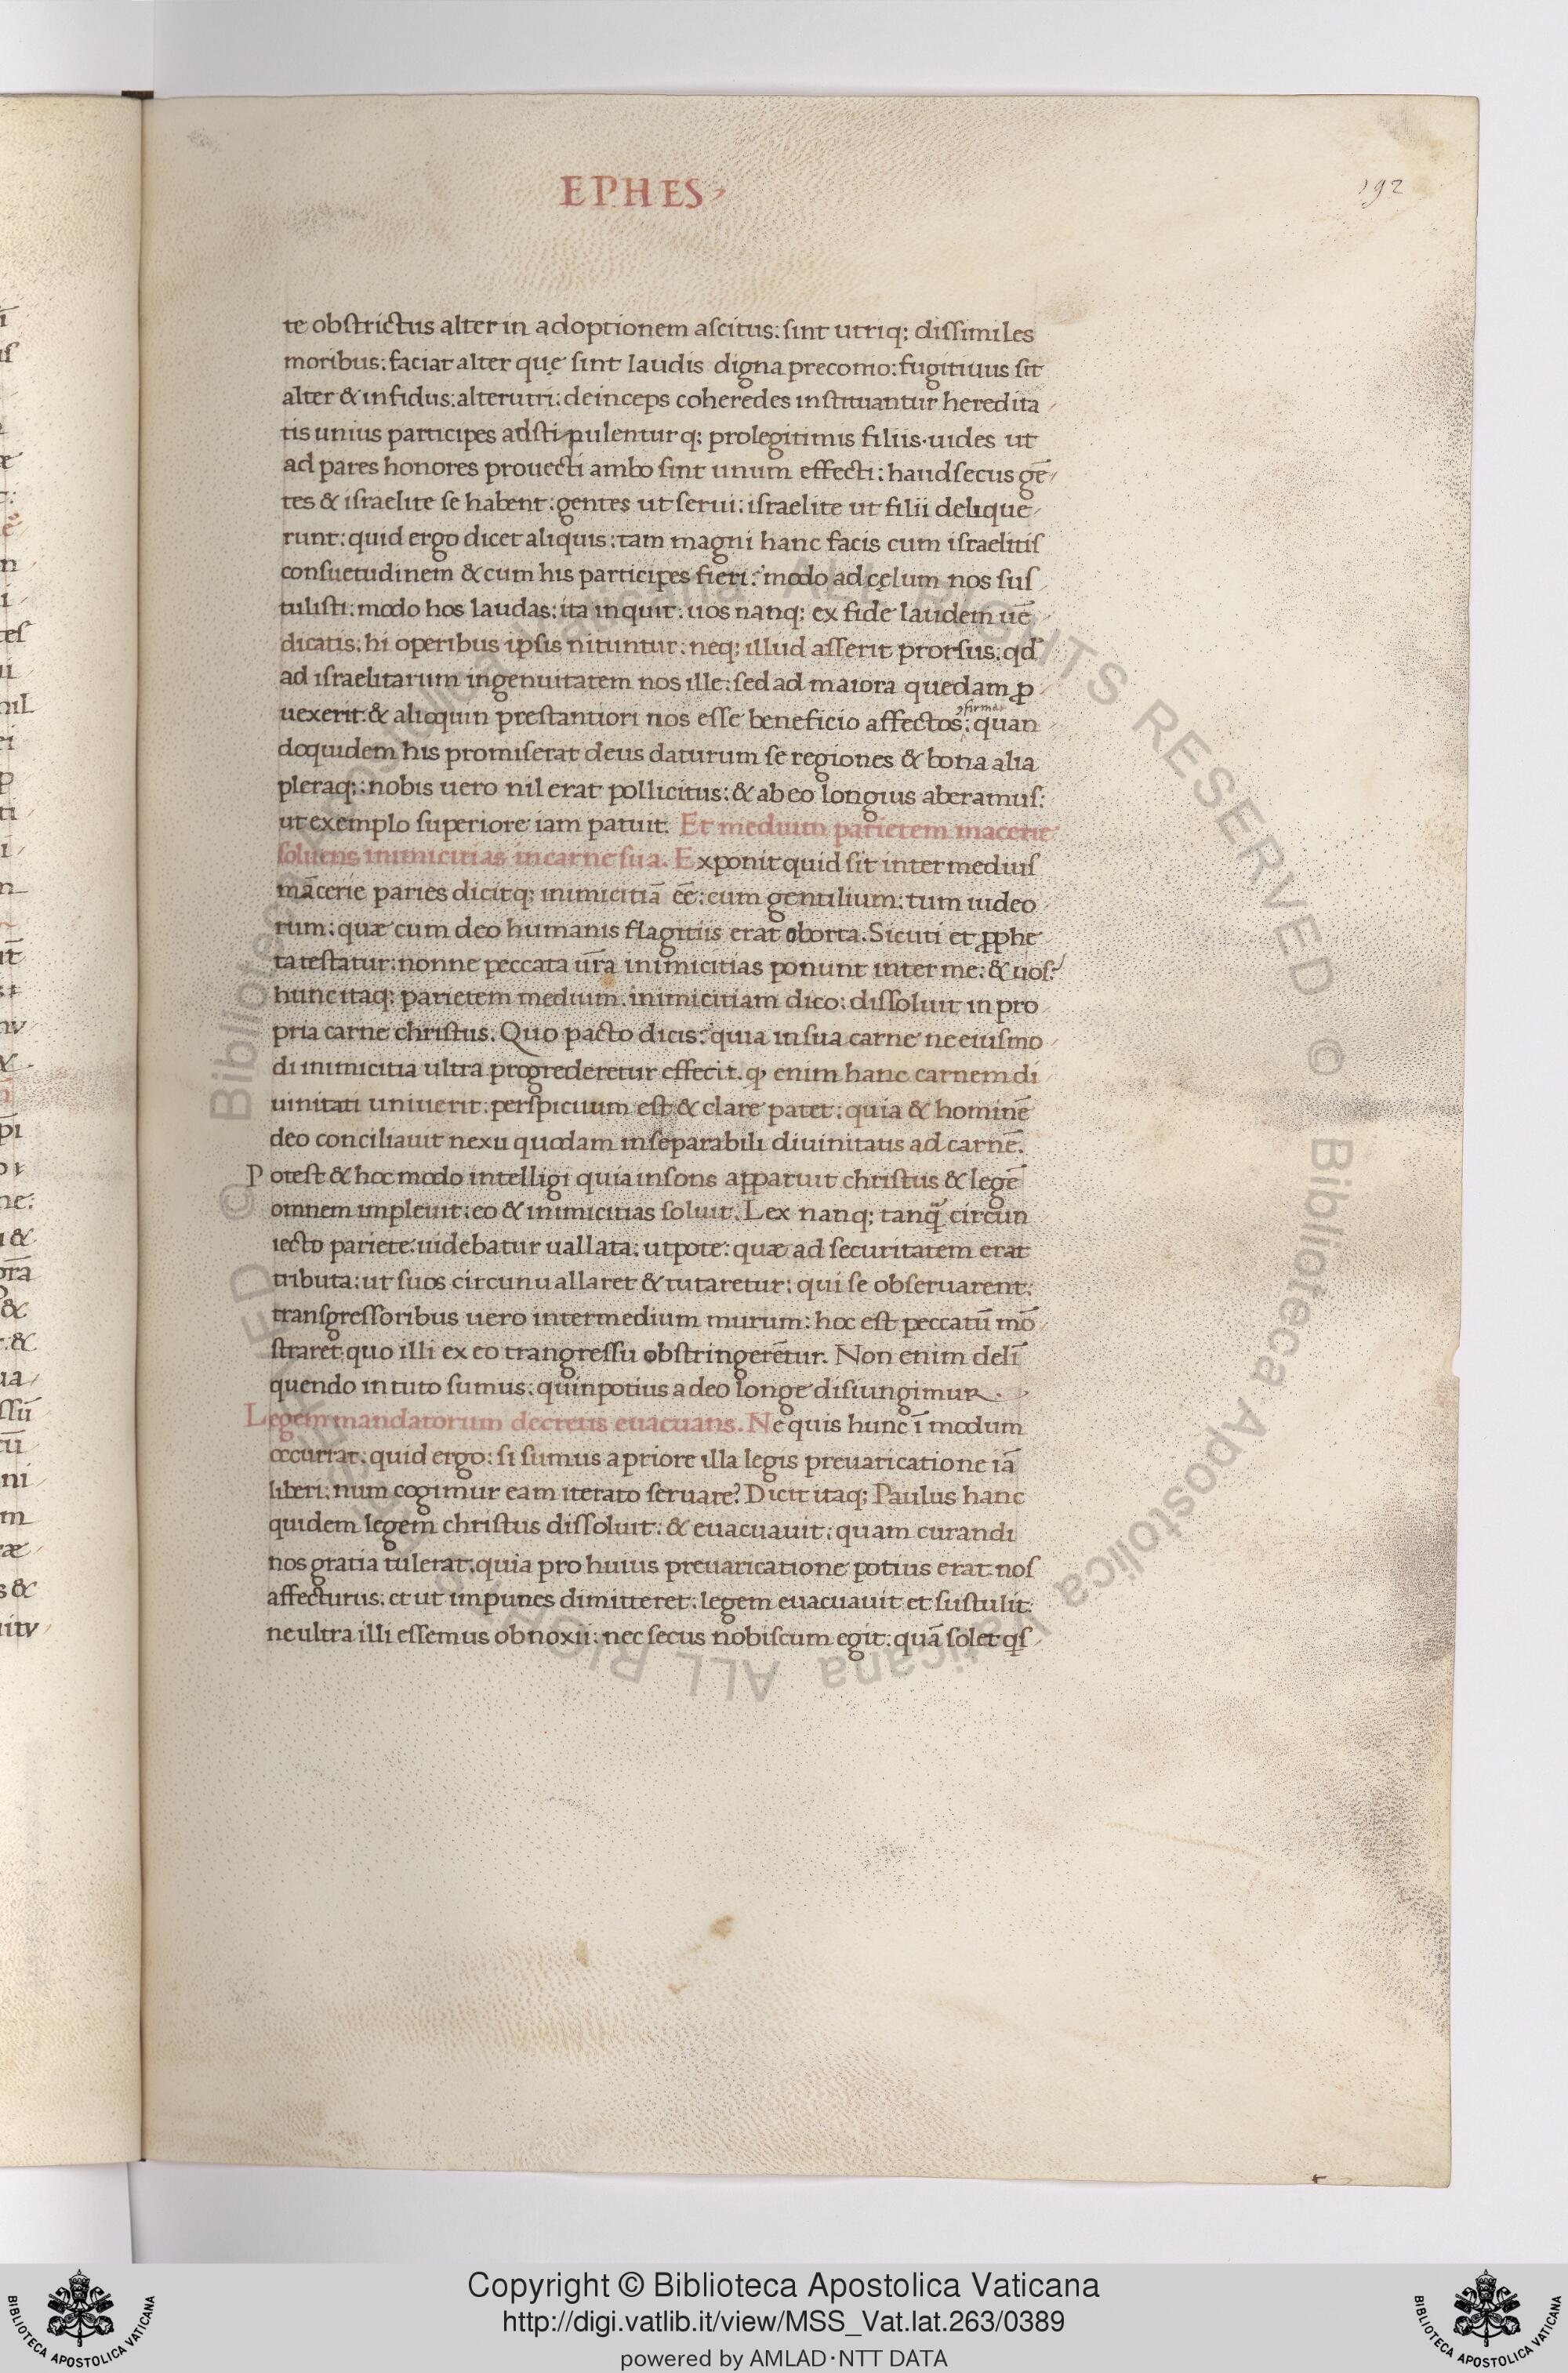 EPHES
192
te obstrictus alter in adoptionem ascitus: sint utriq; dissimiles
moribus: faciat alter quę sint laudis digna preconio: fugitiuus sit
alter & infidus: alterutri: deinceps coheredes instituantur heredita
tis unius participes adstipulentur q; prolegitimis filiis. uides ut
ad pares honores prouecti ambo sint unum effecti: haud secus gē
tes & israelite se habent: gentes ut serui: israelite ut filii delique
runt: quid ergo dicet aliquis: tam magni hanc facis cum israelitis
consuetudinem & cum his participes fieri: modo ad cęlum nos sus
tulisti: modo hos laudas: ita inquit: uos nanq; ex fide laudem uē
dicatis: hi operibus ipsis nituntur: neq; illud asserit prorsus: qđ
ad israelitarum ingenuitatem nos ille: sed ad maiora quedam ꝓ
uexerit: & alioquin prestantiori nos esse beneficio affectos ꝯfirmat: quan
doquidem his promiserat deus daturum se regiones & bona alia
pleraq;: nobis uero nil erat pollicitus: & ab eo longius aberamus:
ut exemplo superiore iam patuit. Et medium parietem macerie
soluens inimicitias in carne sua. Exponit quid sit intermedius
mācerie paries dicitq; inimicitiā eē: cum gentilium: tum iudeo
rum: quæ cum deo humanis flagitiis erat oborta. Sicuti et ꝓphe
ta testatur: nonne peccata ūra inimicitias ponunt inter me: & uos?
hunc itaq; parietem medium: inimicitiam dico: dissoluit in pro
pria carne christus. Quo pacto dicis: quia in sua carne ne eiusmo
di inimicitia ultra progrederetur effecit. ꝙ enim hanc carnem di
uinitati uniuerit: perspicuum est & clare patet: quia & hominē
deo conciliauit nexu quodam inseparabili diuinitatis ad carnē.
Potest & hoc modo intelligi quia insons apparuit christus & legē
omnem impleuit: eo & inimicitias soluit. Lex nanq; tanq̃ circun
iecto pariete uidebatur uallata: utpote: quæ ad securitatem erat
tributa: ut suos circunuallaret & tutaretur: qui se obseruarent:
transgressoribus uero intermedium murum: hoc est peccatū mō
straret quo illi ex eo trangressu obstringerētur. Non enim delī
quendo in tuto sumus: quin potius a deo longe disiungimur.
Legem mandatorum decretis euacuans. Ne quis hunc ī modum
occurrat: quid ergo: si sumus a priore illa legis preuaricatione iā
liberi: num cogimur eam iterato seruare? Dicit itaq; Paulus hanc
quidem legem christus dissoluit: & euacuauit: quam curandi
nos gratia tulerat: quia pro huius preuaricatione potius erat nos
affecturus: et ut impunes dimitteret: legem euacuauit et sustulit:
ne ultra illi essemus obnoxii: nec secus nobiscum egit: quā solet qs
Copyright © Biblioteca Apostolica Vaticana
http://digi.vatlib.it/view/MSS_Vat.lat.263/0389
powered by AMLAD·NTT DATA